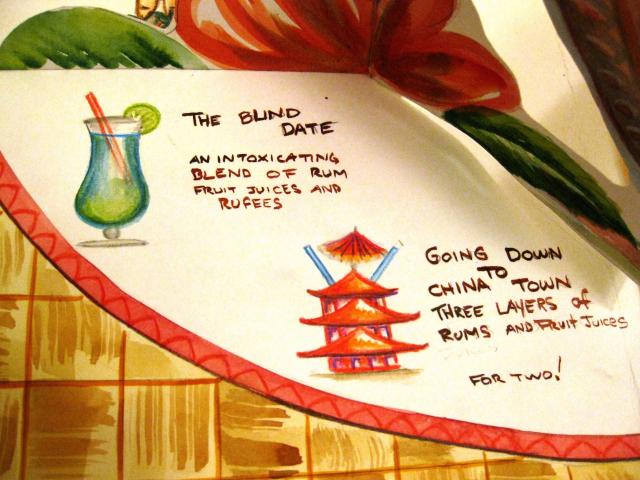 THE BLIND
DATE
AN INTOXICATING
BLEND OF RUM
FRUIT JUICES AND
RUFEES
GOING DOWN
TO
CHINA TOWN
THREE LAYERS of
RUMS AND FRUIT JUICES
FOR TWO!